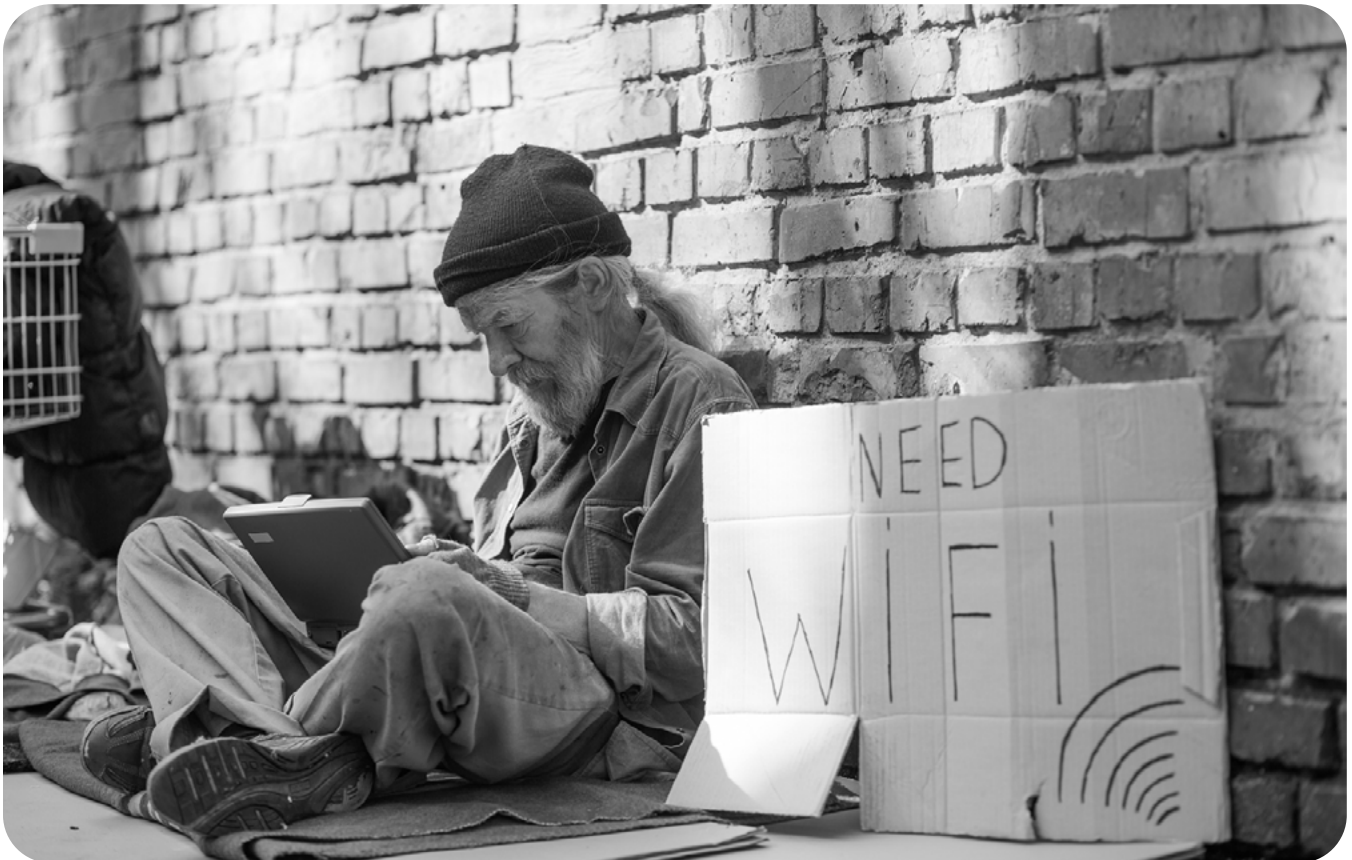 NEED
WiFi